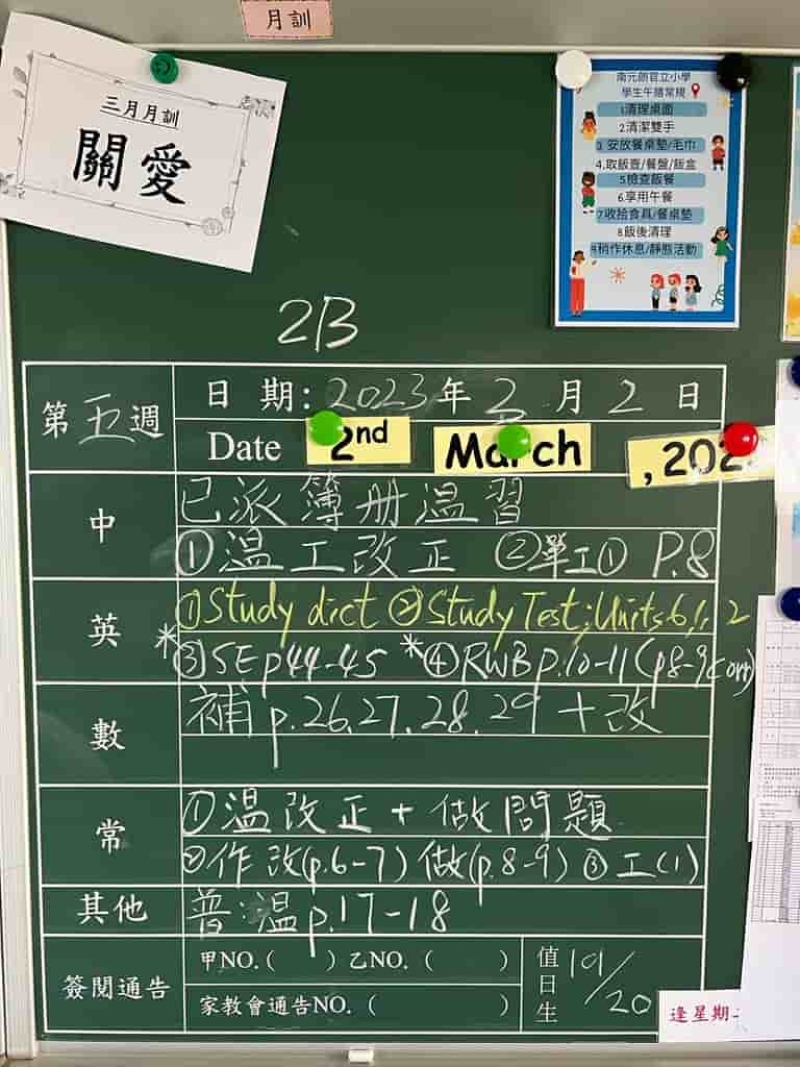 月訓
三月月訓
關愛
南元朗官立小學
學生午膳常規
1清理桌面
2.清潔雙手
3.安放餐桌墊/毛巾
4.取飯壺/餐盤/飯盒
5檢查飯餐
6.享用午餐
7收拾食具/餐桌墊
8.飯後清理
9稍作休息/靜態活動
2B
第五週
日期:2023年3月2日
Date 2nd March , 202
中
已派簿册温習
①温工改正 ②單工① P.8
英
①Study dict ②Study Test; Units 6, 1, 2
*③SE p44-45 *④RWB p.10-11 (p8-9 corr)
數
補 p.26.27.28.29 + 改
常
①温改正 + 做問題
②作改(p.6-7) 做(p.8-9) ③工(1)
其他
普:温 p.17-18
簽閱通告
甲NO.( ) 乙NO. ( )
家教會通告NO. ( )
值日生
19/20
逢星期二